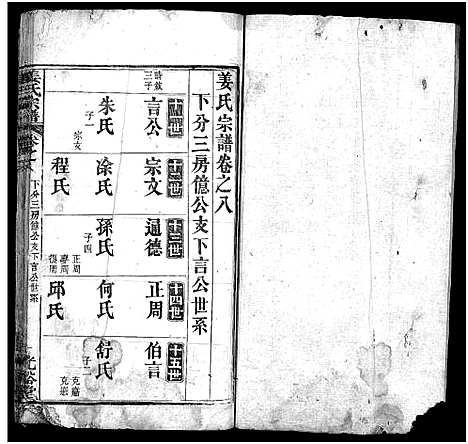 姜氏宗譜卷之八
下分三房億公支下言公世系
詩敘
三子
言公
朱氏
子一
宗文
十二世
宗文
涂氏
程氏
十三世
逼德
孫氏
子四
正周
十四世
正周
何氏
邱氏
十五世
伯言
舒氏
子二
克嘉
姜氏宗譜
卷之八
下分三房億公支下言公世系
光裕堂